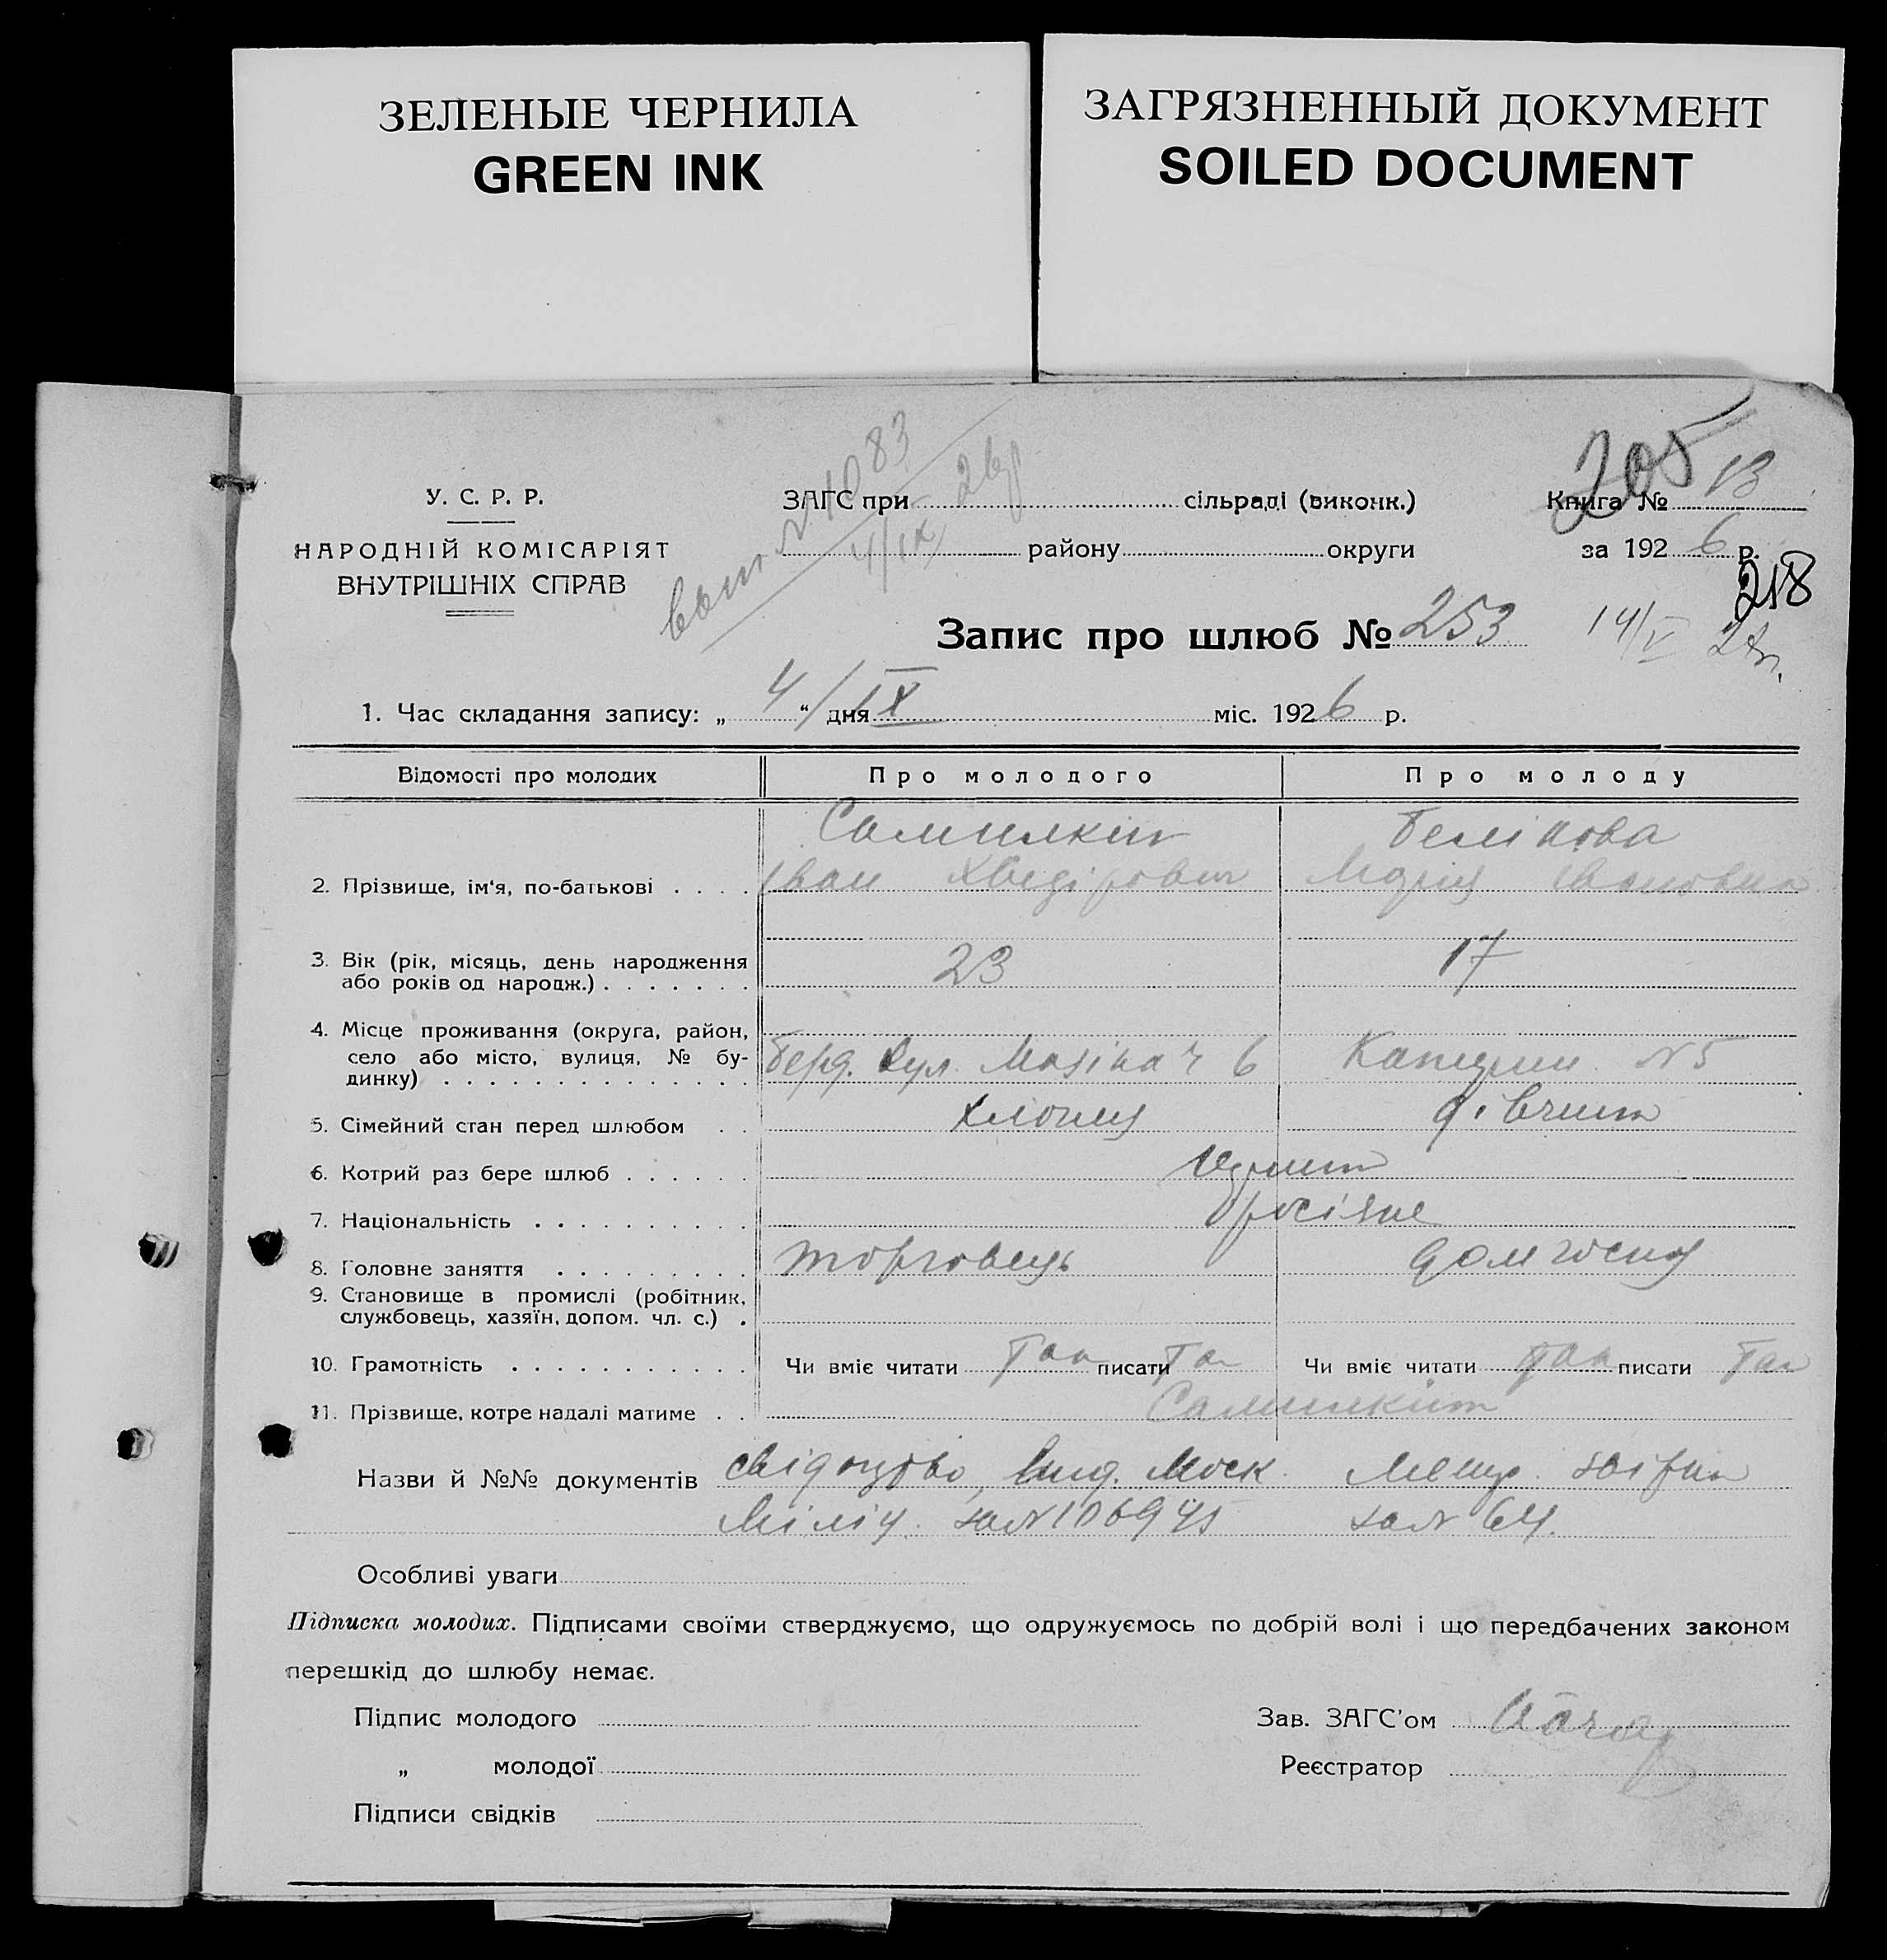 ЗЕЛЕНЫЕ ЧЕРНИЛА
GREEN INK
ЗАГРЯЗНЕННЫЙ ДОКУМЕНТ
SOILED DOCUMENT
205
У. С. Р. Р.
НАРОДНІЙ КОМІСАРІЯТ
ВНУТРІШНІХ СПРАВ
вып № 1083
4/IX 26р
ЗАГС при сільраді (виконк.)
району округи
Книга № 13
за 192 6 р.
218
Запис про шлюб № 253
14/V
1. Час складання запису: „ 4 “ дня IX міс. 192 6 р.
Відомості про молодих Про молодого Про молоду
Самилкін Белікова
2. Прізвище, ім'я, по-батькові . . . . Іван Хведірович Марія Івановна
3. Вік (рік, місяць, день народження 23 17
або років од народж.) . . . . . . .
4. Місце проживання (округа, район,
село або місто, вулиця, № бу- Берд. вул. Мазіна ч 6 №5
динку) . . . . . . . . . . . . . .
5. Сімейний стан перед шлюбом . . хлопець дівчина
6. Котрий раз бере шлюб . . . . . .
7. Національність . . . . . . . . . . росіяне
8. Головне заняття . . . . . . . . . торговець дом господ
9. Становище в промислі (робітник,
службовець, хазяїн, допом. чл. с.) .
10. Грамотність . . . . . . . . . . . Чи вміє читати так писати так Чи вміє читати так писати так
11. Прізвище, котре надалі матиме . . Самилкін
Назви й №№ документів свідоцтво, вид. Моск. Метр. довідка
Міліц. за № 106945 за № 64.
Особливі уваги
Підписка молодих. Підписами своїми стверджуємо, що одружуємось по добрій волі і що передбачених законом
перешкід до шлюбу немає.
Підпис молодого Зав. ЗАГС'ом
„ молодої Реєстратор
Підписи свідків